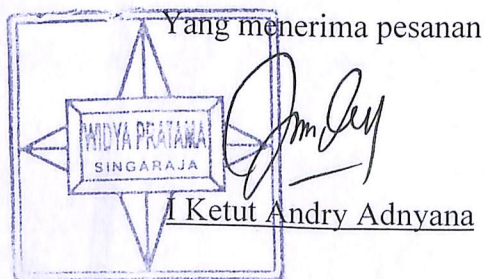 Yang menerima pesanan
WIDYA PRATAMA
SINGARAJA
I Ketut Andry Adnyana